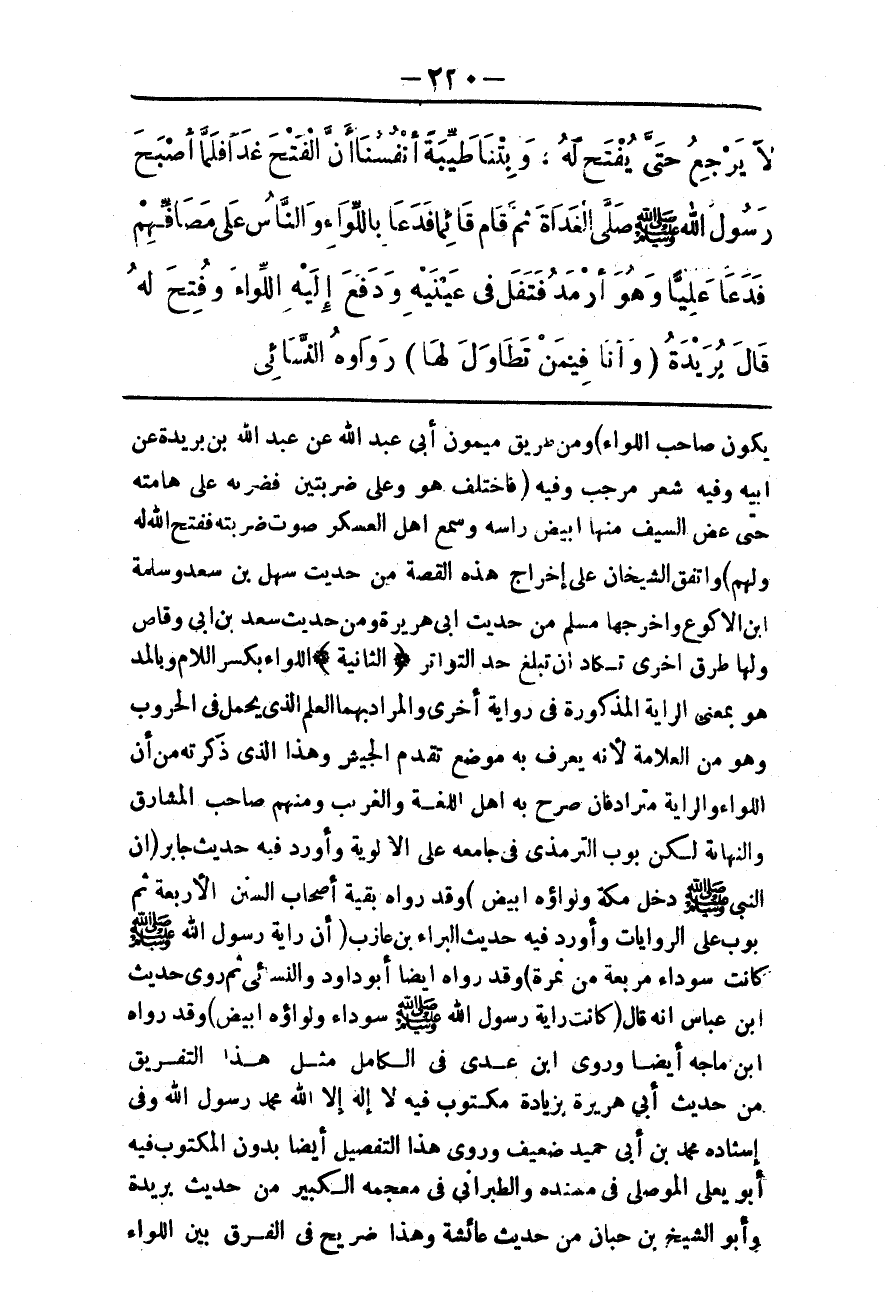 — ٢٢٠ —
لاَ يَرْجِعُ حَتَّى يُفْتَحَ لَهُ ، وَبِتْنَا طَيِّبَةً أَنْفُسُنَا أَنَّ الْفَتْحَ غَدًا فَلَمَّا أَصْبَحَ
رَسُولُ اللهِ ﷺ صَلَّى الْغَدَاةَ ثُمَّ قَامَ قَائِمًا فَدَعَا بِاللِّوَاءِ وَالنَّاسُ عَلَى مَصَافِّهِمْ
فَدَعَا عَلِيًّا وَهُوَ أَرْمَدُ فَتَفَلَ فِى عَيْنَيْهِ وَدَفَعَ إِلَيْهِ اللِّوَاءَ وَفُتِحَ لَهُ
قَالَ بُرَيْدَةُ ( وَأَنَا فِيمَنْ تَطَاوَلَ لَهَا ) رَوَاهُ النَّسَائِى
يكون صاحب اللواء)ومن طريق ميمون أبي عبد الله عن عبد الله بن بريدة عن
ابيه وفيه شعر مرجب وفيه (فاختلف هو وعلى ضربتين فضربه على هامته
حتى عض السيف منها ابيض راسه وسمع اهل العسكر صوت ضربته ففتح الله له
ولهم)واتفق الشيخان على إخراج هذه القصة من حديث سهل بن سعد وسلمة
ابن الاكوع واخرجها مسلم من حديث ابى هريرة ومن حديث سعد بن ابي وقاص
ولها طرق اخرى تـكاد ان تبلغ حد التواتر ﴿ الثانية ﴾ اللواء بكسر اللام وبالمد
هو بمعنى الراية المذكورة فى رواية أخرى والمراد بهما العلم الذى يحمل فى الحروب
وهو من العلامة لأنه يعرف به موضع تقدم الجيش وهذا الذى ذكرته من أن
اللواء والراية مترادفان صرح به اهل اللغـة والغريب ومنهم صاحب المشارق
والنهاية لـكن بوب الترمذى فى جامعه على الالوية وأورد فيه حديث جابر (ان
النبى ﷺ دخل مكة ولواؤه ابيض )وقد رواه بقية أصحاب السنن الأربعة ثم
بوب على الروايات وأورد فيه حديث البراء بن عازب( أن راية رسول الله ﷺ
كانت سوداء مربعة من نمرة)وقد رواه ايضا أبو داود والنسائى ثم روى حديث
ابن عباس انه قال(كانت راية رسول الله ﷺ سوداء ولواؤه ابيض)وقد رواه
ابن ماجه أيضـا وروى ابن عـدى فى الـكامل مثـل هـذا التفـريق
من حديث أبي هريرة بزيادة مكـتوب فيه لا إله إلا الله محمد رسول الله وفى
إسناده محمد بن أبى حميد ضعيف وروى هذا التفصيل أيضا بدون المكتوب فيه
أبو يعلى الموصلى فى مسنده والطبرانى فى معجمه الـكبير من حديث بريدة
وأبو الشيخ بن حبان من حديث عائشة وهذا صريح فى الفـرق بين اللواء